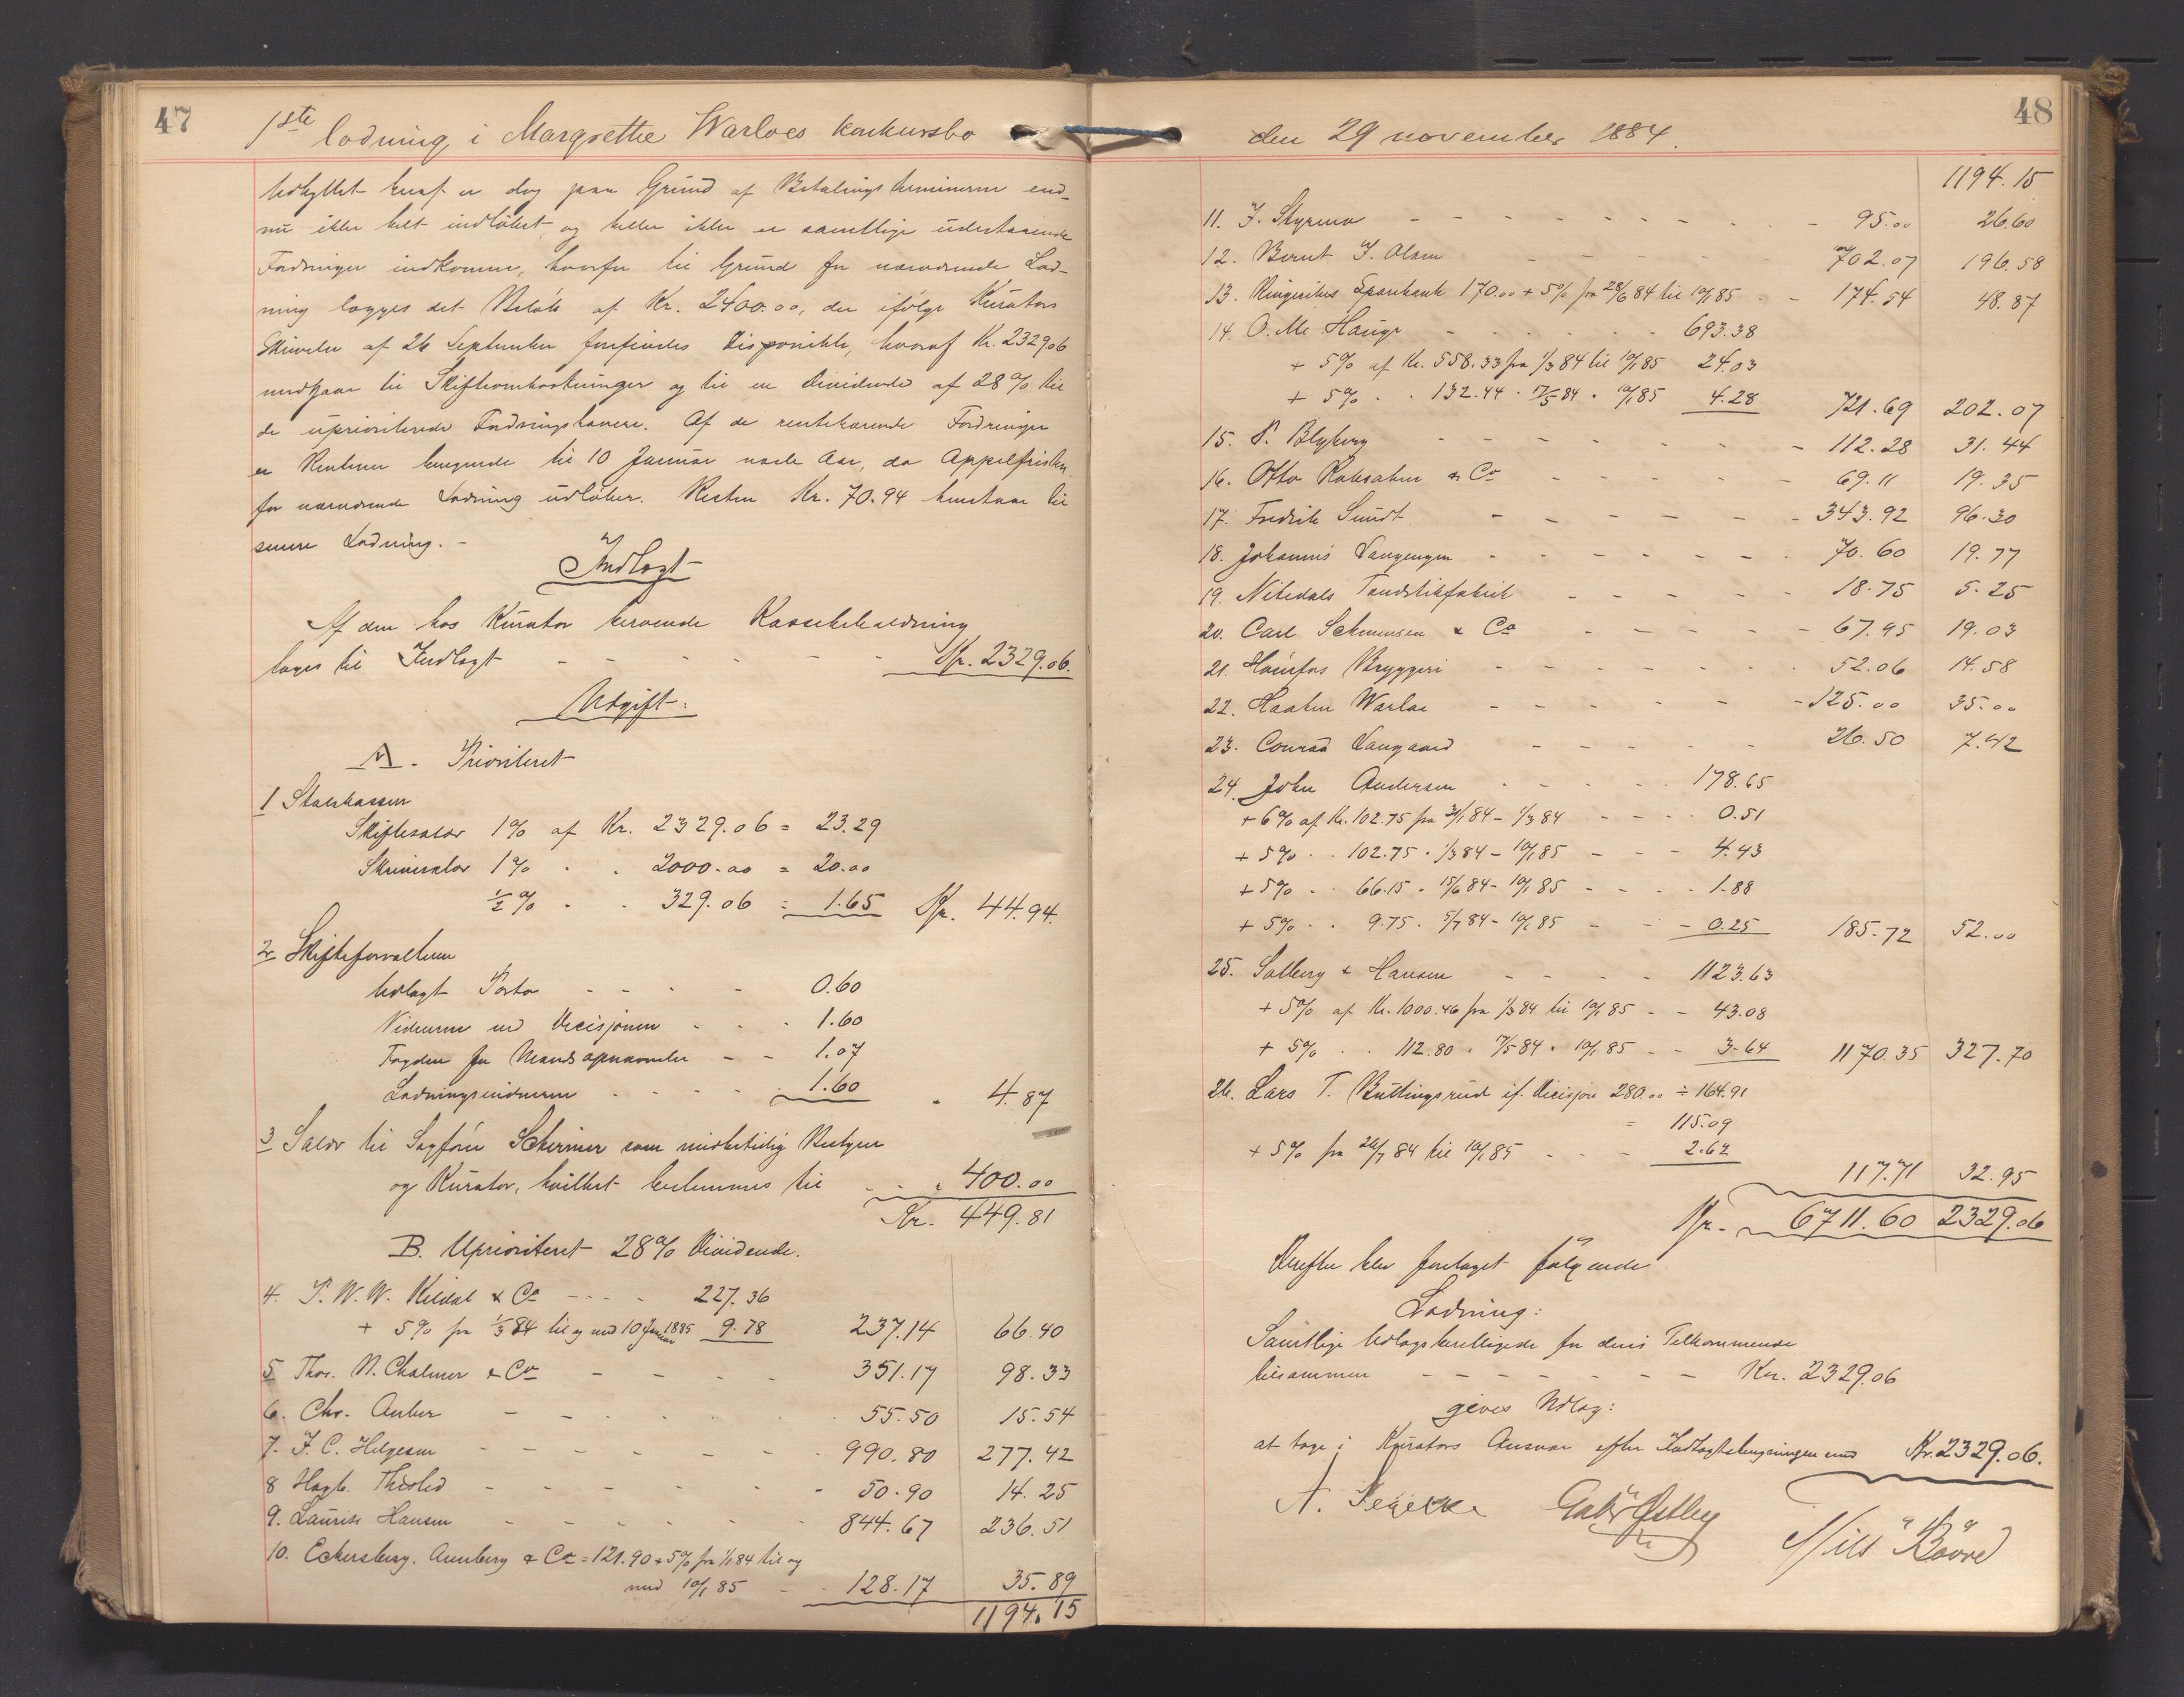 47
1ste lodning i Margrethe Warloes konkursbo
Udbyttet heraf er dog paa Grund af Betalingsterminerne end-
nu ikke helt indløbet, og heller ikke er samtlige udestaaende
Fordringer indkomne, hvorfor til Grund for nærværende Lod-
ning lægges det Beløb af Kr. 2400.00, der ifølge Kurators
Skrivelse af 26 September forefindes disponible, hvoraf Kr. 2329.06
medgaar til Skifteomkostninger og til en Dividende af 28% til
de uprioriterede Fordringshavere. Af de rentebærende Fordringer
er Renterne beregnede til 10 Januar næste Aar, da Appelfristen
for nærværende Lodning udløber. Resten Kr. 70.94 henstaar til
senere Lodning. -
Indtægt
Af den hos Kurator beroende Kassebeholdning
tages til Indtægt - - - - - - Kr. 2329.06.
Udgift:
A. Prioriteret
1 Statskassen
Skiftesalær 1% af Kr. 2329.06 = 23.29
Skriversalær 1% . . 2000.00 = 20.00
½% . . 329.06 = 1.65 Kr. 44.94.
2 Skifteforvalteren
Udlagt Porto - - - - 0.60
Vidnerne ved Decisjonen - - - 1.60
Tægden for Mandsopnævnelse - - 1.07
Lodningsvidnerne - - - - 1.60 " 4.87
3 Salær til Sagfører Schirmer som midlertidig Bestyrer
og Kurator, hvilket bestemmes til - - " 400.00
Kr. 449.81
B. Uprioriteret 28% Dividende.
4. P. W. W. Kildal & Co - - - - 227.36
+ 5% fra 1/3 84 til og med 10 Januar 1885 9.78 237.14 66.40
5 Thos. N. Chalmer & Co - - - - 351.17 98.33
6. Chr. Anker - - - - - 55.50 15.54
7. F. C. Helgesen - - - - - - 990.80 277.42
8 Hagb. - - - - - - 50.90 14.25
9. Lauritz Hansen - - - - - 844.67 236.51
10. Eckersberg, Aumberg & Co = 121.90 + 5% fra 1/1 84 til og
med 10/1 85 - - 128.17 35.89
1194.15
48
den 29 november 1884.
1194.15
11. J. Styrmo - - - - - - - - 95.00 26.60
12. Bernt J. Olsen - - - - - 702.07 196.58
13. Ringerikes Sparebank 170.00 + 5% fra 28/6 84 til 10/1 85 - - 174.54 48.87
14. O. M. Hauge - - - - - - 693.38
+ 5% af Kr. 558.33 fra 1/3 84 til 10/1 85 24.03
+ 5% . . 132.44 . 17/5 84 . 10/1 85 4.28 721.69 202.07
15. P. Blyberg - - - - - - - 112.28 31.44
16. Otto Robsahm & Co - - - - - 69.11 19.35
17. Fredrik Sundt - - - - - - 343.92 96.30
18. Johannes Vangengen - - - - - - - 70.60 19.77
19. Nitedals Tændstikfabrik - - - - - 18.75 5.25
20. Carl Schmensen & Co - - - - - 67.95 19.03
21. Hønefos Bryggeri - - - - - - - 52.06 14.58
22. Haaken Warloe - - - - - - 125.00 35.00
23. Conrad Langaard - - - - - 26.50 7.42
24. John Andersen - - - - - 178.65
+ 6% af Kr. 102.75 fra 31/1 84 - 1/3 84 - - - - 0.51
+ 5% . . 102.75 . 1/3 84 - 10/1 85 - - - 4.43
+ 5% . . 66.15 . 15/6 84 - 10/1 85 - - - - 1.88
+ 5% . . 9.75 . 5/7 84 - 10/1 85 - - - 0.25 185.72 52.00
25. Solberg & Hansen - - - - 1123.63
+ 5% af Kr. 1000.46 fra 1/3 84 til 10/1 85 - - 43.08
+ 5% . . 112.80 . 17/5 84 . 10/1 85 - - 3.64 1170.35 327.70
26. Lars T. Buttingsrud if. Decisjon 280.00 ÷ 164.91
= 115.09
+ 5% fra 26/7 84 til 10/1 85 - - - 2.62
117.71 32.95
Kr. 6711.60 2329.06
Derefter blev foretaget følgende
Lodning:
Samtlige Udlagsberettigede for deres Tilkommende
tilsammen - - - - - - - Kr. 2329.06
gives Udlæg:
at tage i Kurators Ansvar efter Indtægtsberegningen med Kr. 2329.06.
Gabr Østby
Nils Bövre